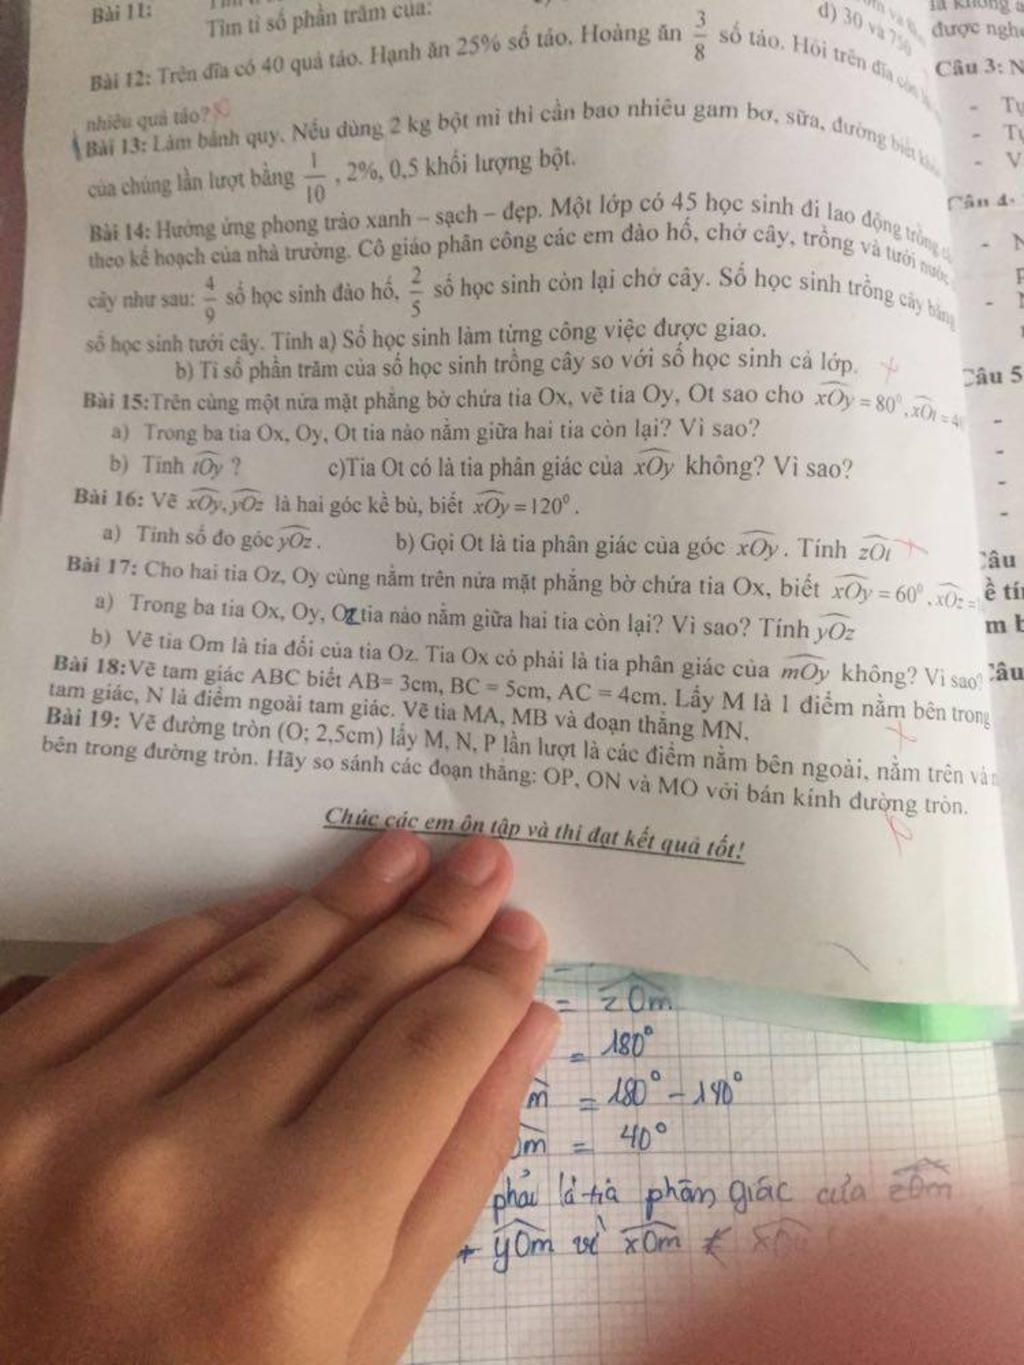 Bài 11:
Tìm tỉ số phần trăm của:
d) 30 và 750
Bài 12: Trên đĩa có 40 quả táo. Hạnh ăn 25% số táo. Hoàng ăn 3/8 số táo. Hỏi trên đĩa còn
nhiêu quả táo?
Bài 13: Làm bánh quy. Nếu dùng 2 kg bột mì thì cần bao nhiêu gam bơ, sữa, đường biết
của chúng lần lượt bằng 1/10 , 2%, 0,5 khối lượng bột.
Bài 14: Hưởng ứng phong trào xanh – sạch – đẹp. Một lớp có 45 học sinh đi lao động trồng
theo kế hoạch của nhà trường. Cô giáo phân công các em đào hố, chở cây, trồng và tưới nước
cây như sau: 4/9 số học sinh đào hố, 2/5 số học sinh còn lại chở cây. Số học sinh trồng cây bằng
số học sinh tưới cây. Tính a) Số học sinh làm từng công việc được giao.
b) Tỉ số phần trăm của số học sinh trồng cây so với số học sinh cả lớp.
Bài 15:Trên cùng một nửa mặt phẳng bờ chứa tia Ox, vẽ tia Oy, Ot sao cho xOy = 80⁰, xOt = 4
a) Trong ba tia Ox, Oy, Ot tia nào nằm giữa hai tia còn lại? Vì sao?
b) Tính tOy ? c)Tia Ot có là tia phân giác của xOy không? Vì sao?
Bài 16: Vẽ xOy, yOz là hai góc kề bù, biết xOy = 120⁰ .
a) Tính số đo góc yOz . b) Gọi Ot là tia phân giác của góc xOy . Tính zOt
Bài 17: Cho hai tia Oz, Oy cùng nằm trên nửa mặt phẳng bờ chứa tia Ox, biết xOy = 60⁰ , xOz =
a) Trong ba tia Ox, Oy, Oz tia nào nằm giữa hai tia còn lại? Vì sao? Tính yOz
b) Vẽ tia Om là tia đối của tia Oz. Tia Ox có phải là tia phân giác của mOy không? Vì sao?
Bài 18:Vẽ tam giác ABC biết AB= 3cm, BC = 5cm, AC = 4cm. Lấy M là 1 điểm nằm bên trong
tam giác, N là điểm ngoài tam giác. Vẽ tia MA, MB và đoạn thẳng MN.
Bài 19: Vẽ đường tròn (O; 2,5cm) lấy M, N, P lần lượt là các điểm nằm bên ngoài, nằm trên và
bên trong đường tròn. Hãy so sánh các đoạn thẳng: OP, ON và MO với bán kính đường tròn.
Chúc các em ôn tập và thi đạt kết quả tốt!
được
Câu 3: N
- Tự
- V
Câu 4:
Câu 5
Câu
m b
Câu
= zOm
= 180⁰
m = 180⁰ - 140⁰
Om = 40⁰
phải là tia phân giác của zOm
+ yOm vì xOm